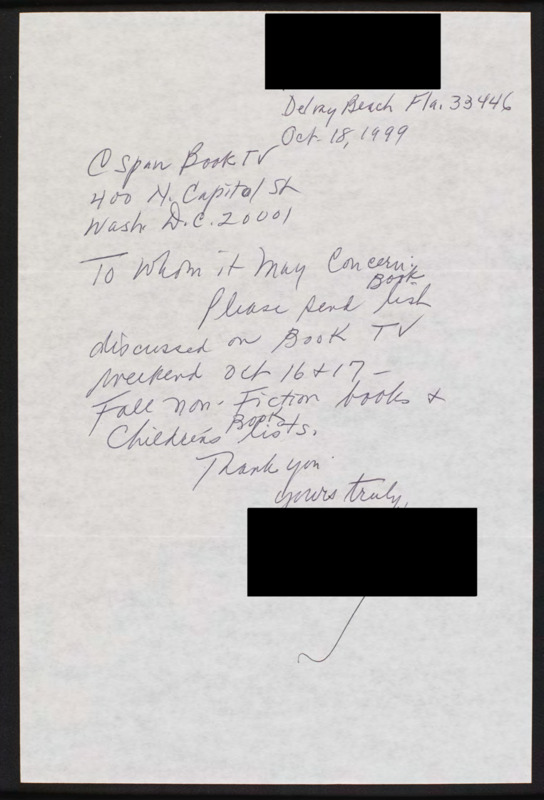 Delray Beach Fla. 33446
Oct. 18, 1999
C Span Book TV
400 N. Capitol St
Wash. D.C. 20001
To Whom it May Concern:
Book
Please send list
discussed on Book TV
weekend Oct 16 + 17 -
Fall non-Fiction books +
Book
Children's lists.
Thank you
yours truly,